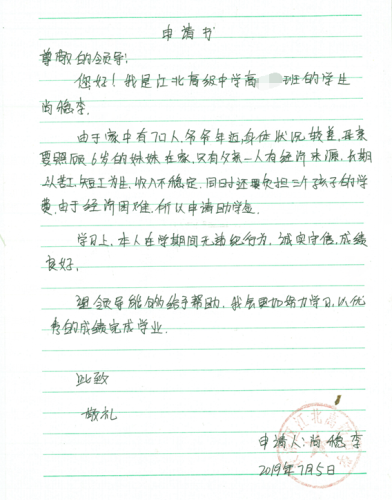 申请书
尊敬的领导:
您好！我是江北高级中学高 班的学生
尚德李.
由于家中有7口人,爷爷年近身体状况较差,
要照顾6岁的妹妹在家,只有父亲一人有经济来源,长期
以苦工,短工为生,收入不稳定.同时还要负担三个孩子的学
费.由于经济困难,所以申请助学金.
学习上,本人在学期间无违纪行为,诚实守信,成绩
良好.
望领导能够给予帮助.我会更加努力学习,以优
秀的成绩完成学业.
此致
敬礼
申请人:尚德李
2019年7月5日
江北高